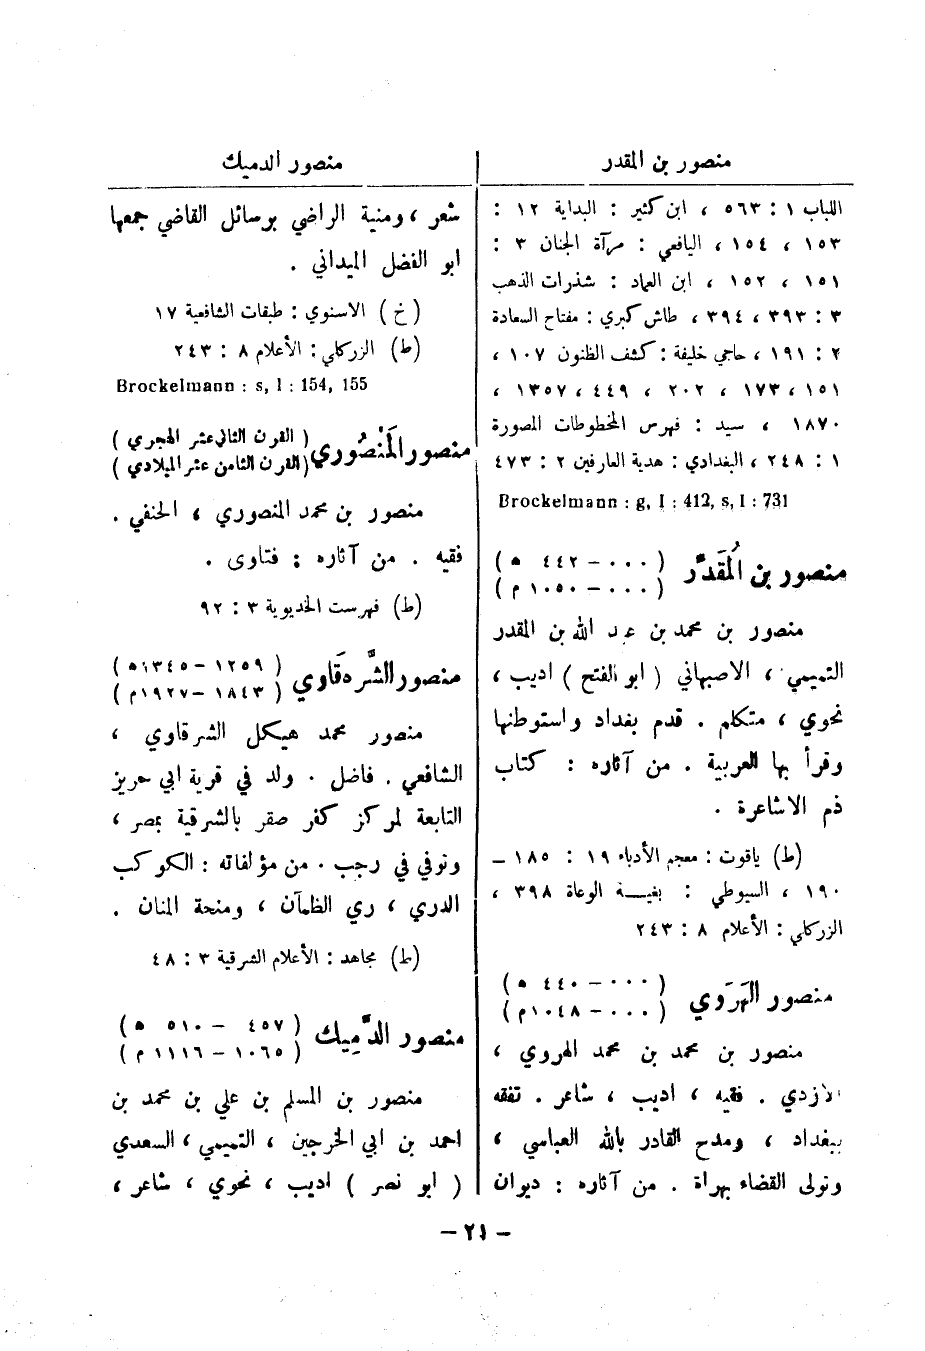 منصور بن المقدر
اللباب ١ : ٥٦٣ ، ابن كثير : البداية ١٢ :
١٥٣ ، ١٥٤ ، اليافعي : مرآة الجنان ٣ :
١٥١ ، ١٥٢ ، ابن العماد : شذرات الذهب
٣ : ٣٩٣ ، ٣٩٤ ، طاش كبري : مفتاح السعادة
٢ : ١٩١ ، حاجي خليفة : كشف الظنون ١٠٧ ،
١٥١ ، ١٧٣ ، ٢٠٢ ، ٤٤٩ ، ١٣٥٧ ،
١٨٧٠ ، سيد : فهرس المخطوطات المصورة
١ : ٢٤٨ ، البغدادي : هدية العارفين ٢ : ٤٧٣
Brockelmann : g, I : 412, s, I : 731
منصور بن المُقَدَّر ( ٠٠٠ – ٤٤٢ ه )
( ٠٠٠ – ١٠٥٠ م )
منصور بن محمد بن عبد الله بن المقدر
التميمي ، الاصبهاني ( ابو الفتح ) اديب ،
نحوي ، متكلم . قدم بغداد واستوطنها
وقرأ بها العربية . من آثاره : كتاب
ذم الاشاعرة .
(ط) ياقوت : معجم الأدباء ١٩ : ١٨٥ –
١٩٠ ، السيوطي : بغيـة الوعاة ٣٩٨ ،
الزركلي : الأعلام ٨ : ٢٤٣
منصور الهَرَوي ( ٠٠٠ – ٤٤٠ ه )
( ٠٠٠ – ١٠٤٨ م )
منصور بن محمد بن محمد الهروي ،
الأزدي . فقيه ، اديب ، شاعر . تفقه
ببغداد ، ومدح القادر بالله العباسي ،
وتولى القضاء بهراة . من آثاره : ديوان
منصور الدميك
شعر ، ومنية الراضي برسائل القاضي جمعها
ابو الفضل الميداني .
(خ) الاسنوي : طبقات الشافعية ١٧
(ط) الزركلي : الأعلام ٨ : ٢٤٣
Brockelmann : s, I : 154, 155
منصور المَنْصُوري ( القرن الثاني عشر الهجري )
( القرن الثامن عشر الميلادي )
منصور بن محمد المنصوري ، الحنفي .
فقيه . من آثاره : فتاوى .
(ط) فهرست الخديوية ٣ : ٩٢
منصور الشَّرقَاوي ( ١٢٥٩ – ١٣٤٥ ه )
( ١٨٤٣ – ١٩٢٧ م )
منصور محمد هيكل الشرقاوي ،
الشافعي . فاضل . ولد في قرية ابي حريز
التابعة لمركز كفر صقر بالشرقية بمصر ،
وتوفي في رجب . من مؤلفاته : الكوكب
الدري ، ري الظمآن ، ومنحة المنان .
(ط) مجاهد : الأعلام الشرقية ٣ : ٤٨
منصور الدَّميك ( ٤٥٧ – ٥١٠ ه )
( ١٠٦٥ – ١١١٦ م )
منصور بن المسلم بن علي بن محمد بن
احمد بن ابي الخرجين ، التميمي ، السعدي
( ابو نصر ) اديب ، نحوي ، شاعر ،
– ٢١ –